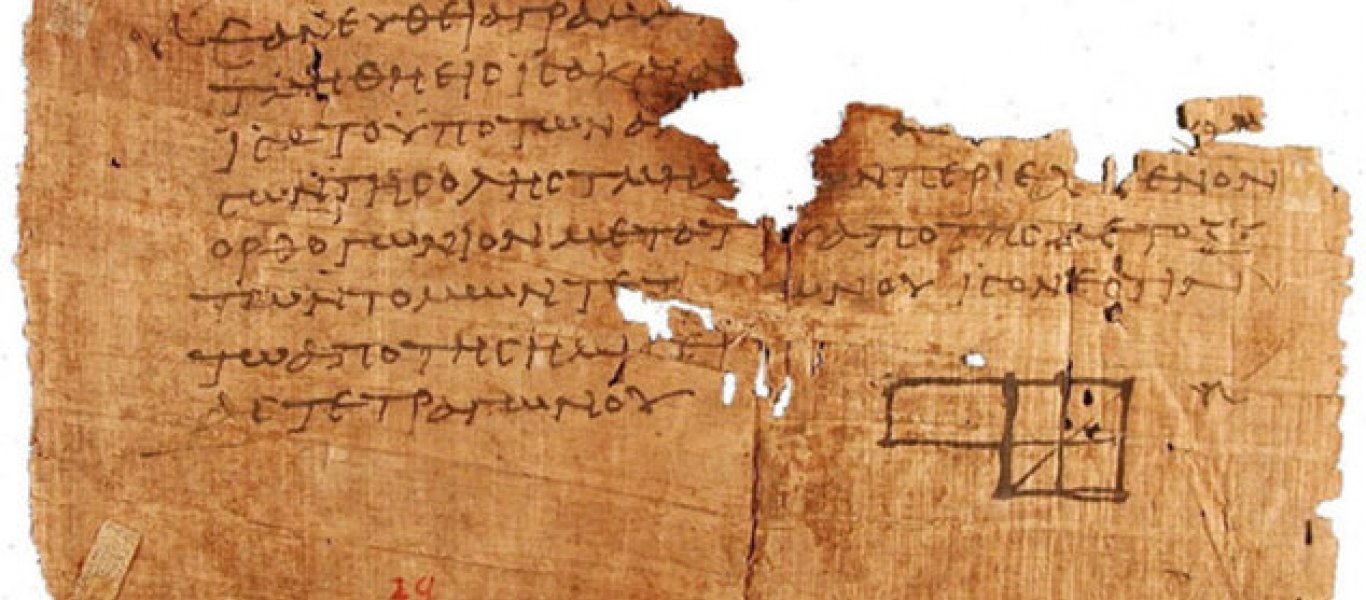 ΕΑΝΕΥΘΕΙΑΓΡΑΜΜ
ΤΜΗΘΗΕΙϹΙϹΑΚΑΙΑ
ΙϹΑΤΟΥΠΟΤΩΝΑ
ϹΩΝΤΗϹΟΛΗϹΤΜΗΜ ΩΝΠΕΡΙΕΧ ΜΕΝΟΝ
ΟΡΘΟΓΩΝΙΟΝΜΕΤΑΤΟ ΑΠΟΤΗϹΜΕΤΟΞΥ
ΤΩΝΤΟΜΩΝΤΕΤ ΩΝΟΥΙϹΟΝΕϹΤΙΝ
ΤΩΑΠΟΤΗϹΗΜΙ ΕΙ
ΑϹΤΕΤΡΑΓΩΝΟΥ